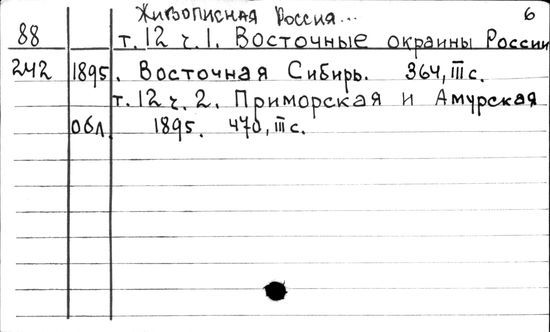 Живописная Россия... 6
88 т. 12 ч. 1. Восточные окраины России
242 1895. Восточная Сибирь. 364, III с.
т. 12 ч. 2. Приморская и Амурская
обл. 1895. 470, III с.